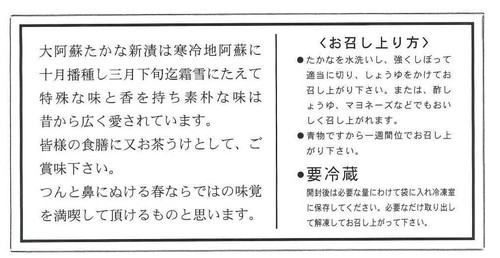 大阿蘇たかな新漬は寒冷地阿蘇に
十月播種し三月下旬迄霜雪にたえて
特殊な味と香を持ち素朴な味は
昔から広く愛されています。
皆様の食膳に又お茶うけとして、ご
賞味下さい。
つんと鼻にぬける春ならではの味覚
を満喫して頂けるものと思います。
〈お召し上り方〉
●たかなを水洗いし、強くしぼって
適当に切り、しょうゆをかけてお
召し上がり下さい。または、酢し
ょうゆ、マヨネーズなどでもおい
しく召し上がれます。
●青物ですから一週間位でお召し上
がり下さい。
●要冷蔵
開封後は必要な量にわけて袋に入れ冷凍室
に保存してください。必要なだけ取り出し
て解凍してお召し上がって下さい。